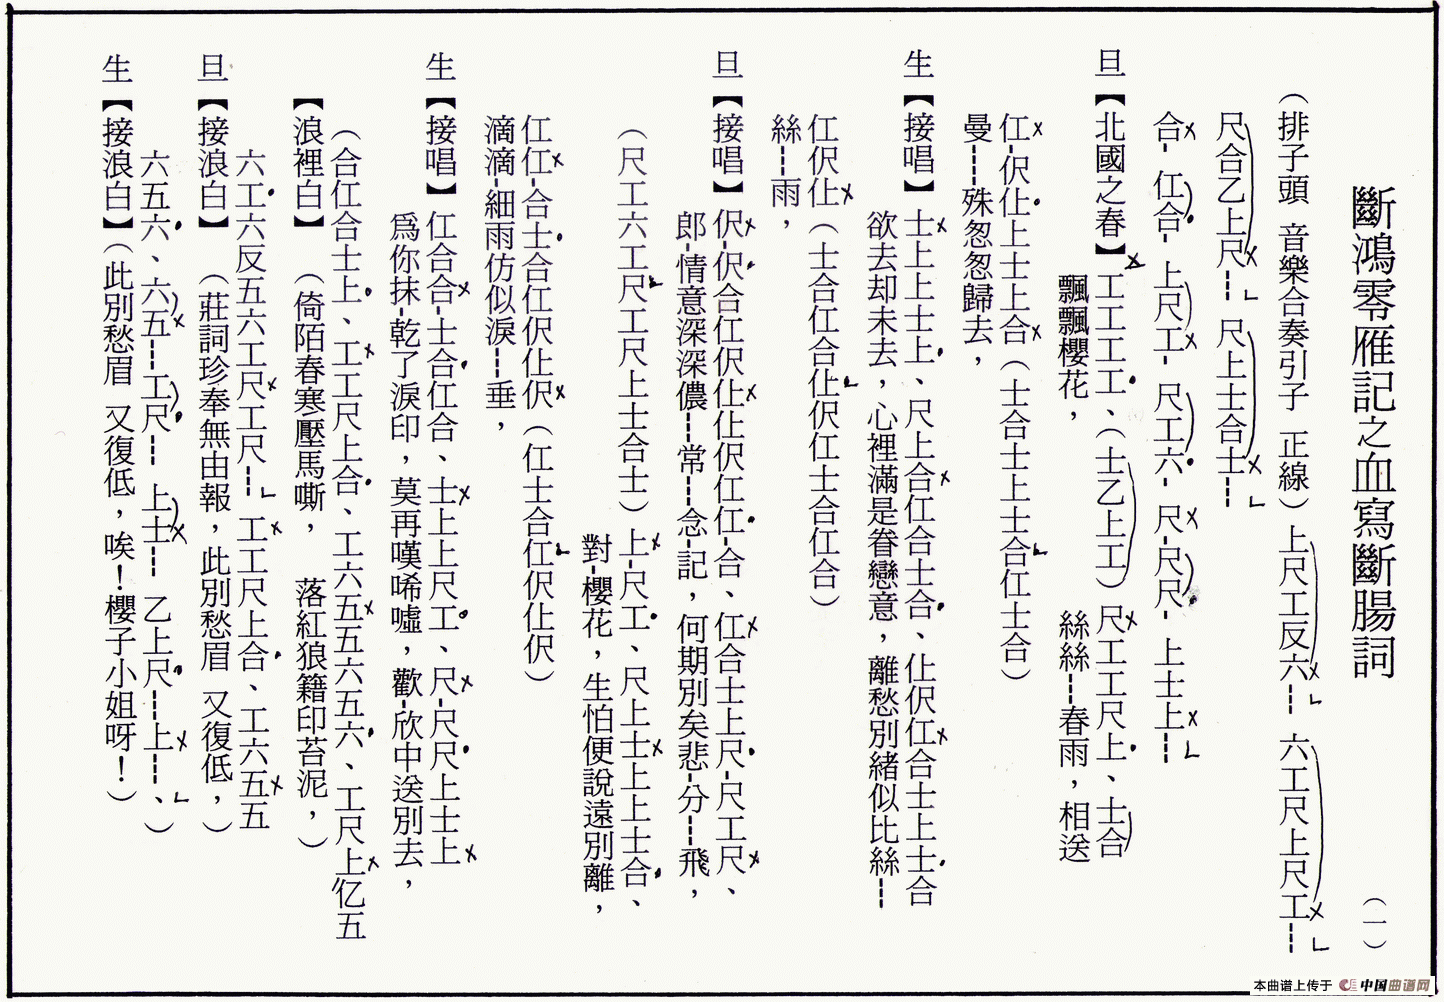 斷鴻零雁記之血寫斷腸詞 （一）
（排子頭 音樂合奏引子 正線）上尺工反六 六工尺上尺工
尺合乙上尺 尺上士合士
合 仜合 上尺工 尺工六 尺 尺尺 上士上
旦【北國之春】工工工工、（士乙上工）尺工工尺上、士合
飄飄櫻花， 絲絲 春雨，相送
仜 伬仩上士上合（士合士上士合仜士合）
曼 殊怱怱歸去，
生【接唱】士上上士上、尺上合仜合士合、仩伬仜合士上士合
欲去却未去，心裡滿是眷戀意，離愁別緒似比絲
仜伬仩（士合仜合仩伬仜士合仜合）
絲 雨，
旦【接唱】伬 伬合仜伬仩仩伬仜仜 合、仜合士上尺 尺工尺、
郎 情意深深儂 常 念 記，何期別矣悲 分 飛，
（尺工六工尺工尺上士合士）上 尺工、尺上士上上士合、
對 櫻花，生怕便說遠別離，
仜仜 合士合仜伬仩伬（仜士合仜伬仩伬）
滴滴 細雨仿似淚 垂，
生【接唱】仜合合 士合仜合、士上上尺工、尺 尺尺上士上
爲你抹 乾了淚印，莫再嘆唏噓，歡 欣中送別去，
（合仜合士上、工工尺上合、工六五五六五六、工尺上亿五
【浪裡白】（倚陌春寒壓馬嘶， 落紅狼籍印苔泥，）
六工六反五六工尺工尺 工工尺上合、工六五五
旦【接浪白】（莊詞珍奉無由報，此別愁眉 又復低，）
六五六、六五 工尺 上士 乙上尺 上 、）
生【接浪白】（此別愁眉 又復低，唉！櫻子小姐呀！）
本曲谱上传于 中国曲谱网